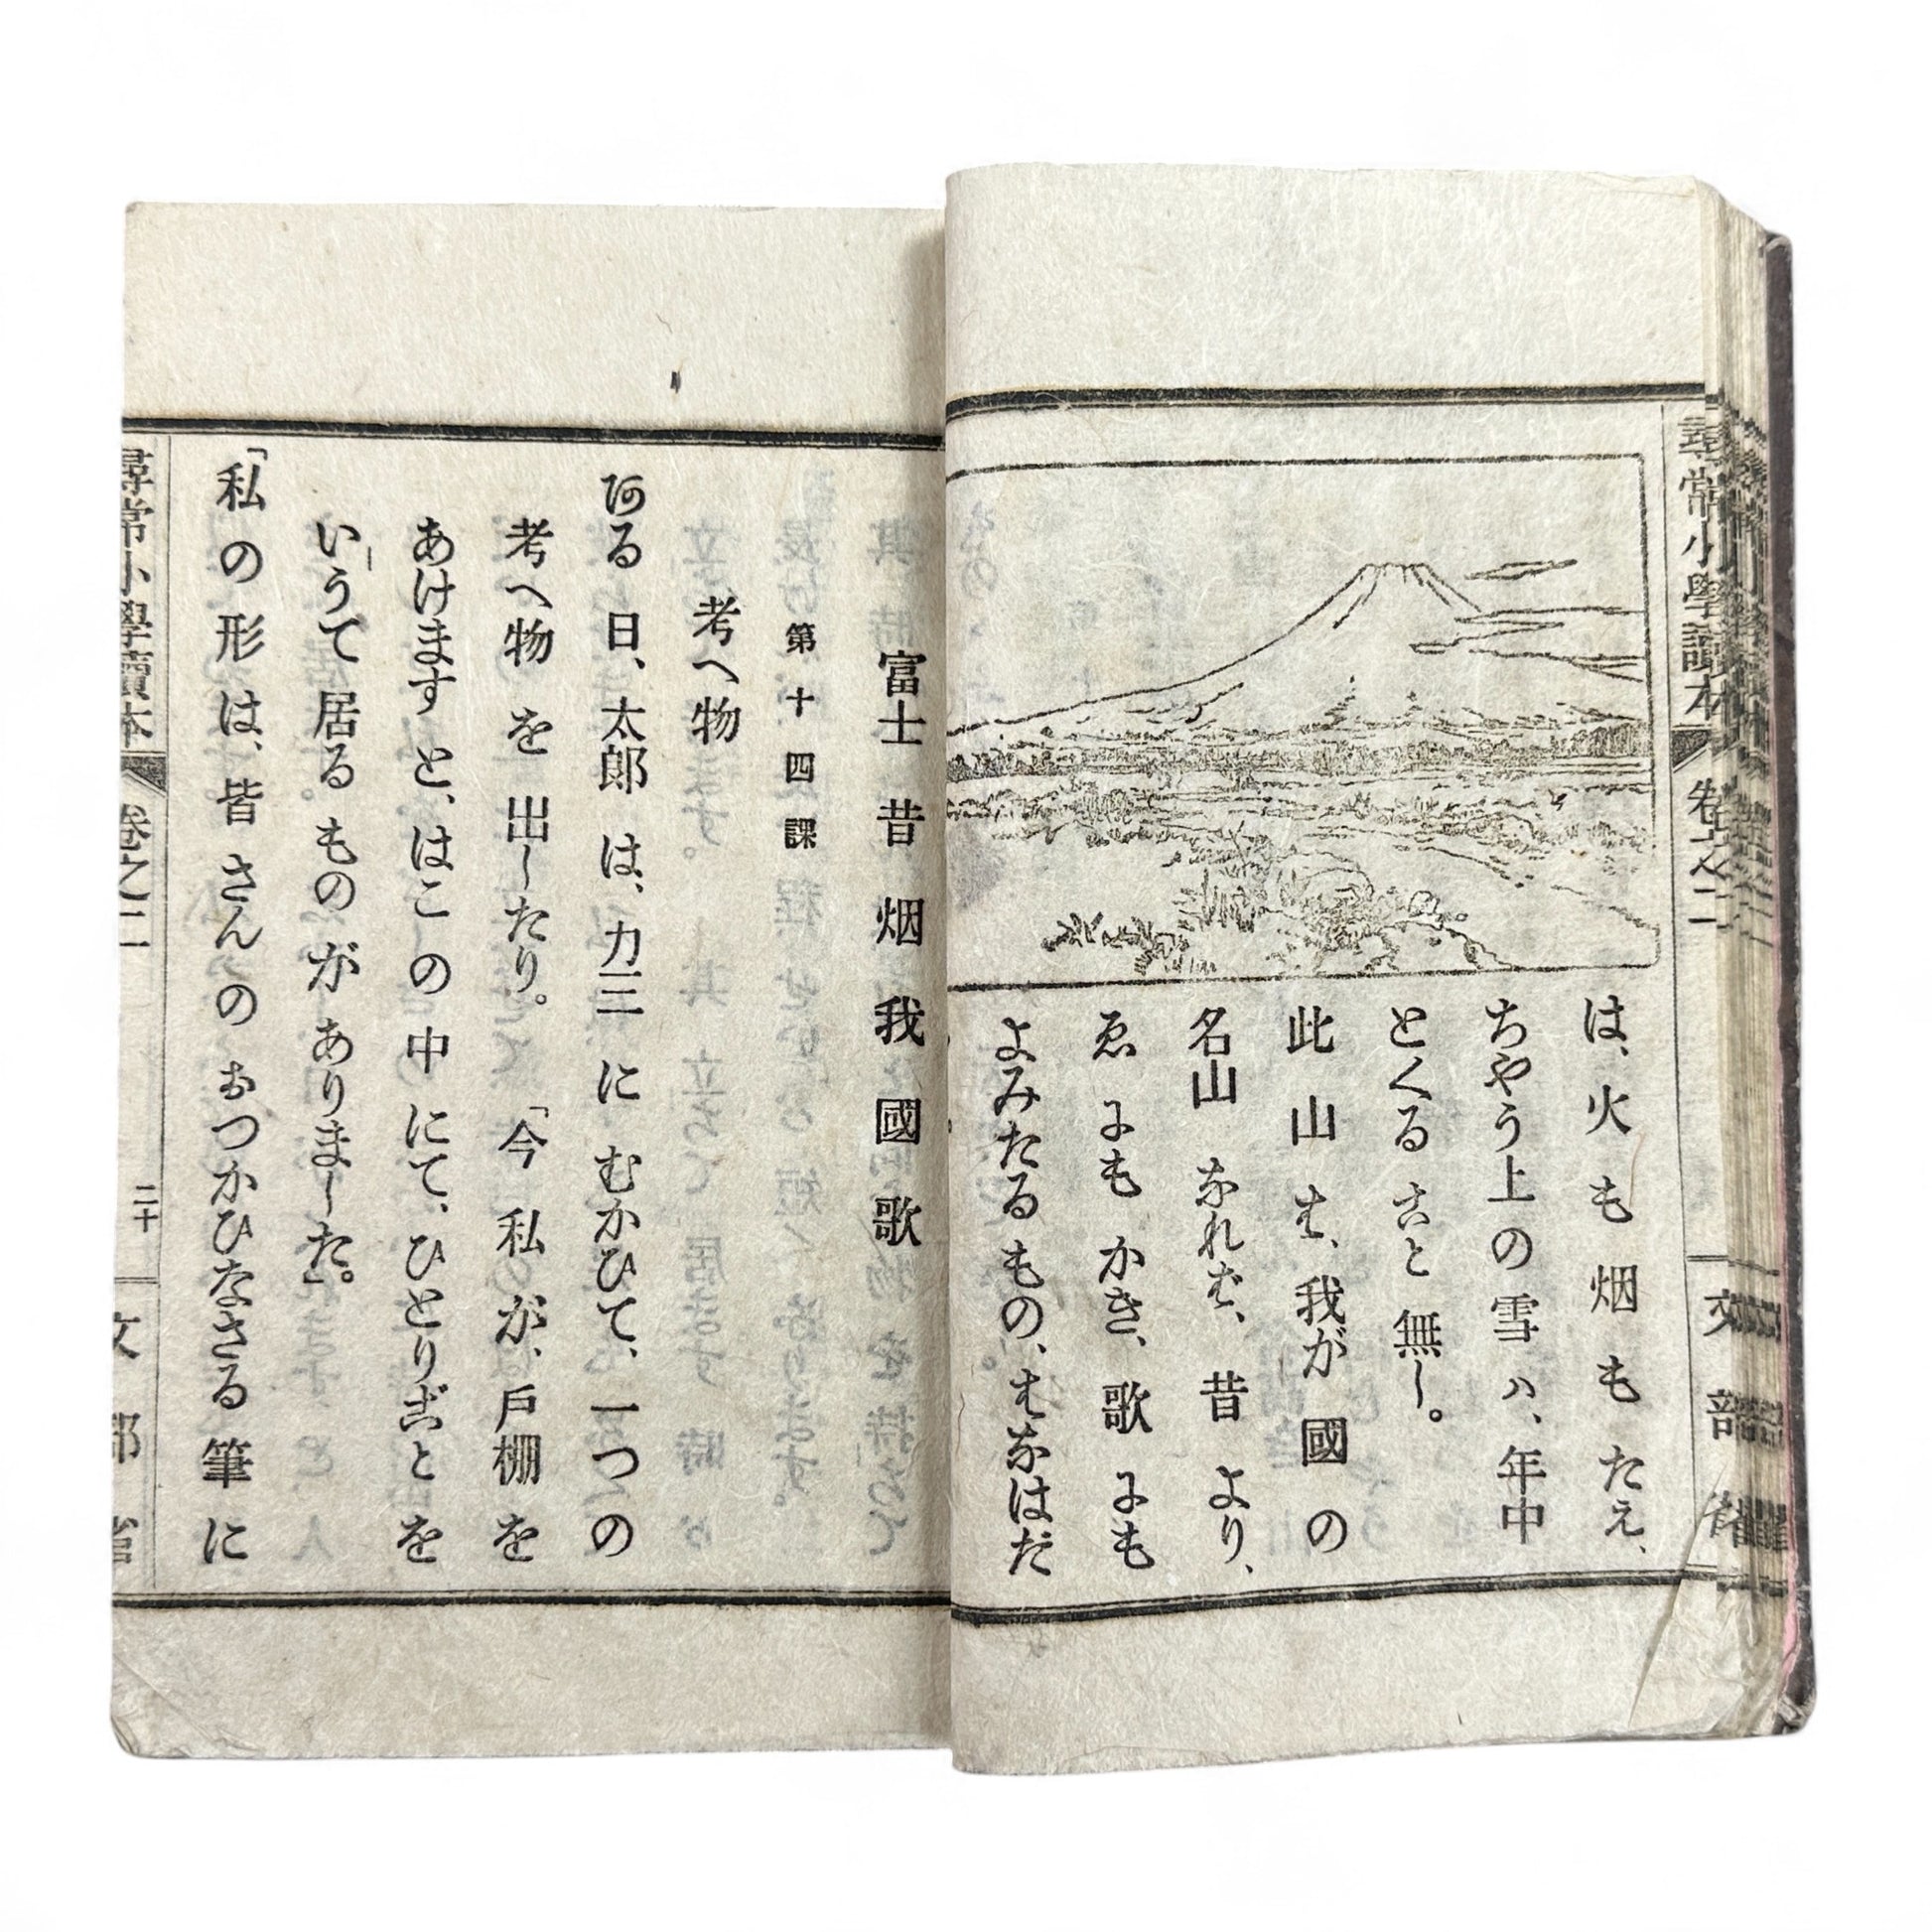 尋常小學讀本 卷之二 文部省
は、火も烟もたえ、
ちやう上の雪ハ、年中
とくること無し。
此山は、我が國の
名山なれば、昔より、
ゑにもかき、歌にも
よみたるもの、はなはだ
富士 昔 烟 我 國 歌
第十四課
考へ物
ある日、太郎は、力三にむかひて、一つの
考へ物を出したり。「今私が、戸棚を
あけますと、はこの中にて、ひとりごとを
いうて居るものがありました。」
「私の形は、皆さんのおつかひなさる筆に
尋常小學讀本 卷之二 二十 文部省